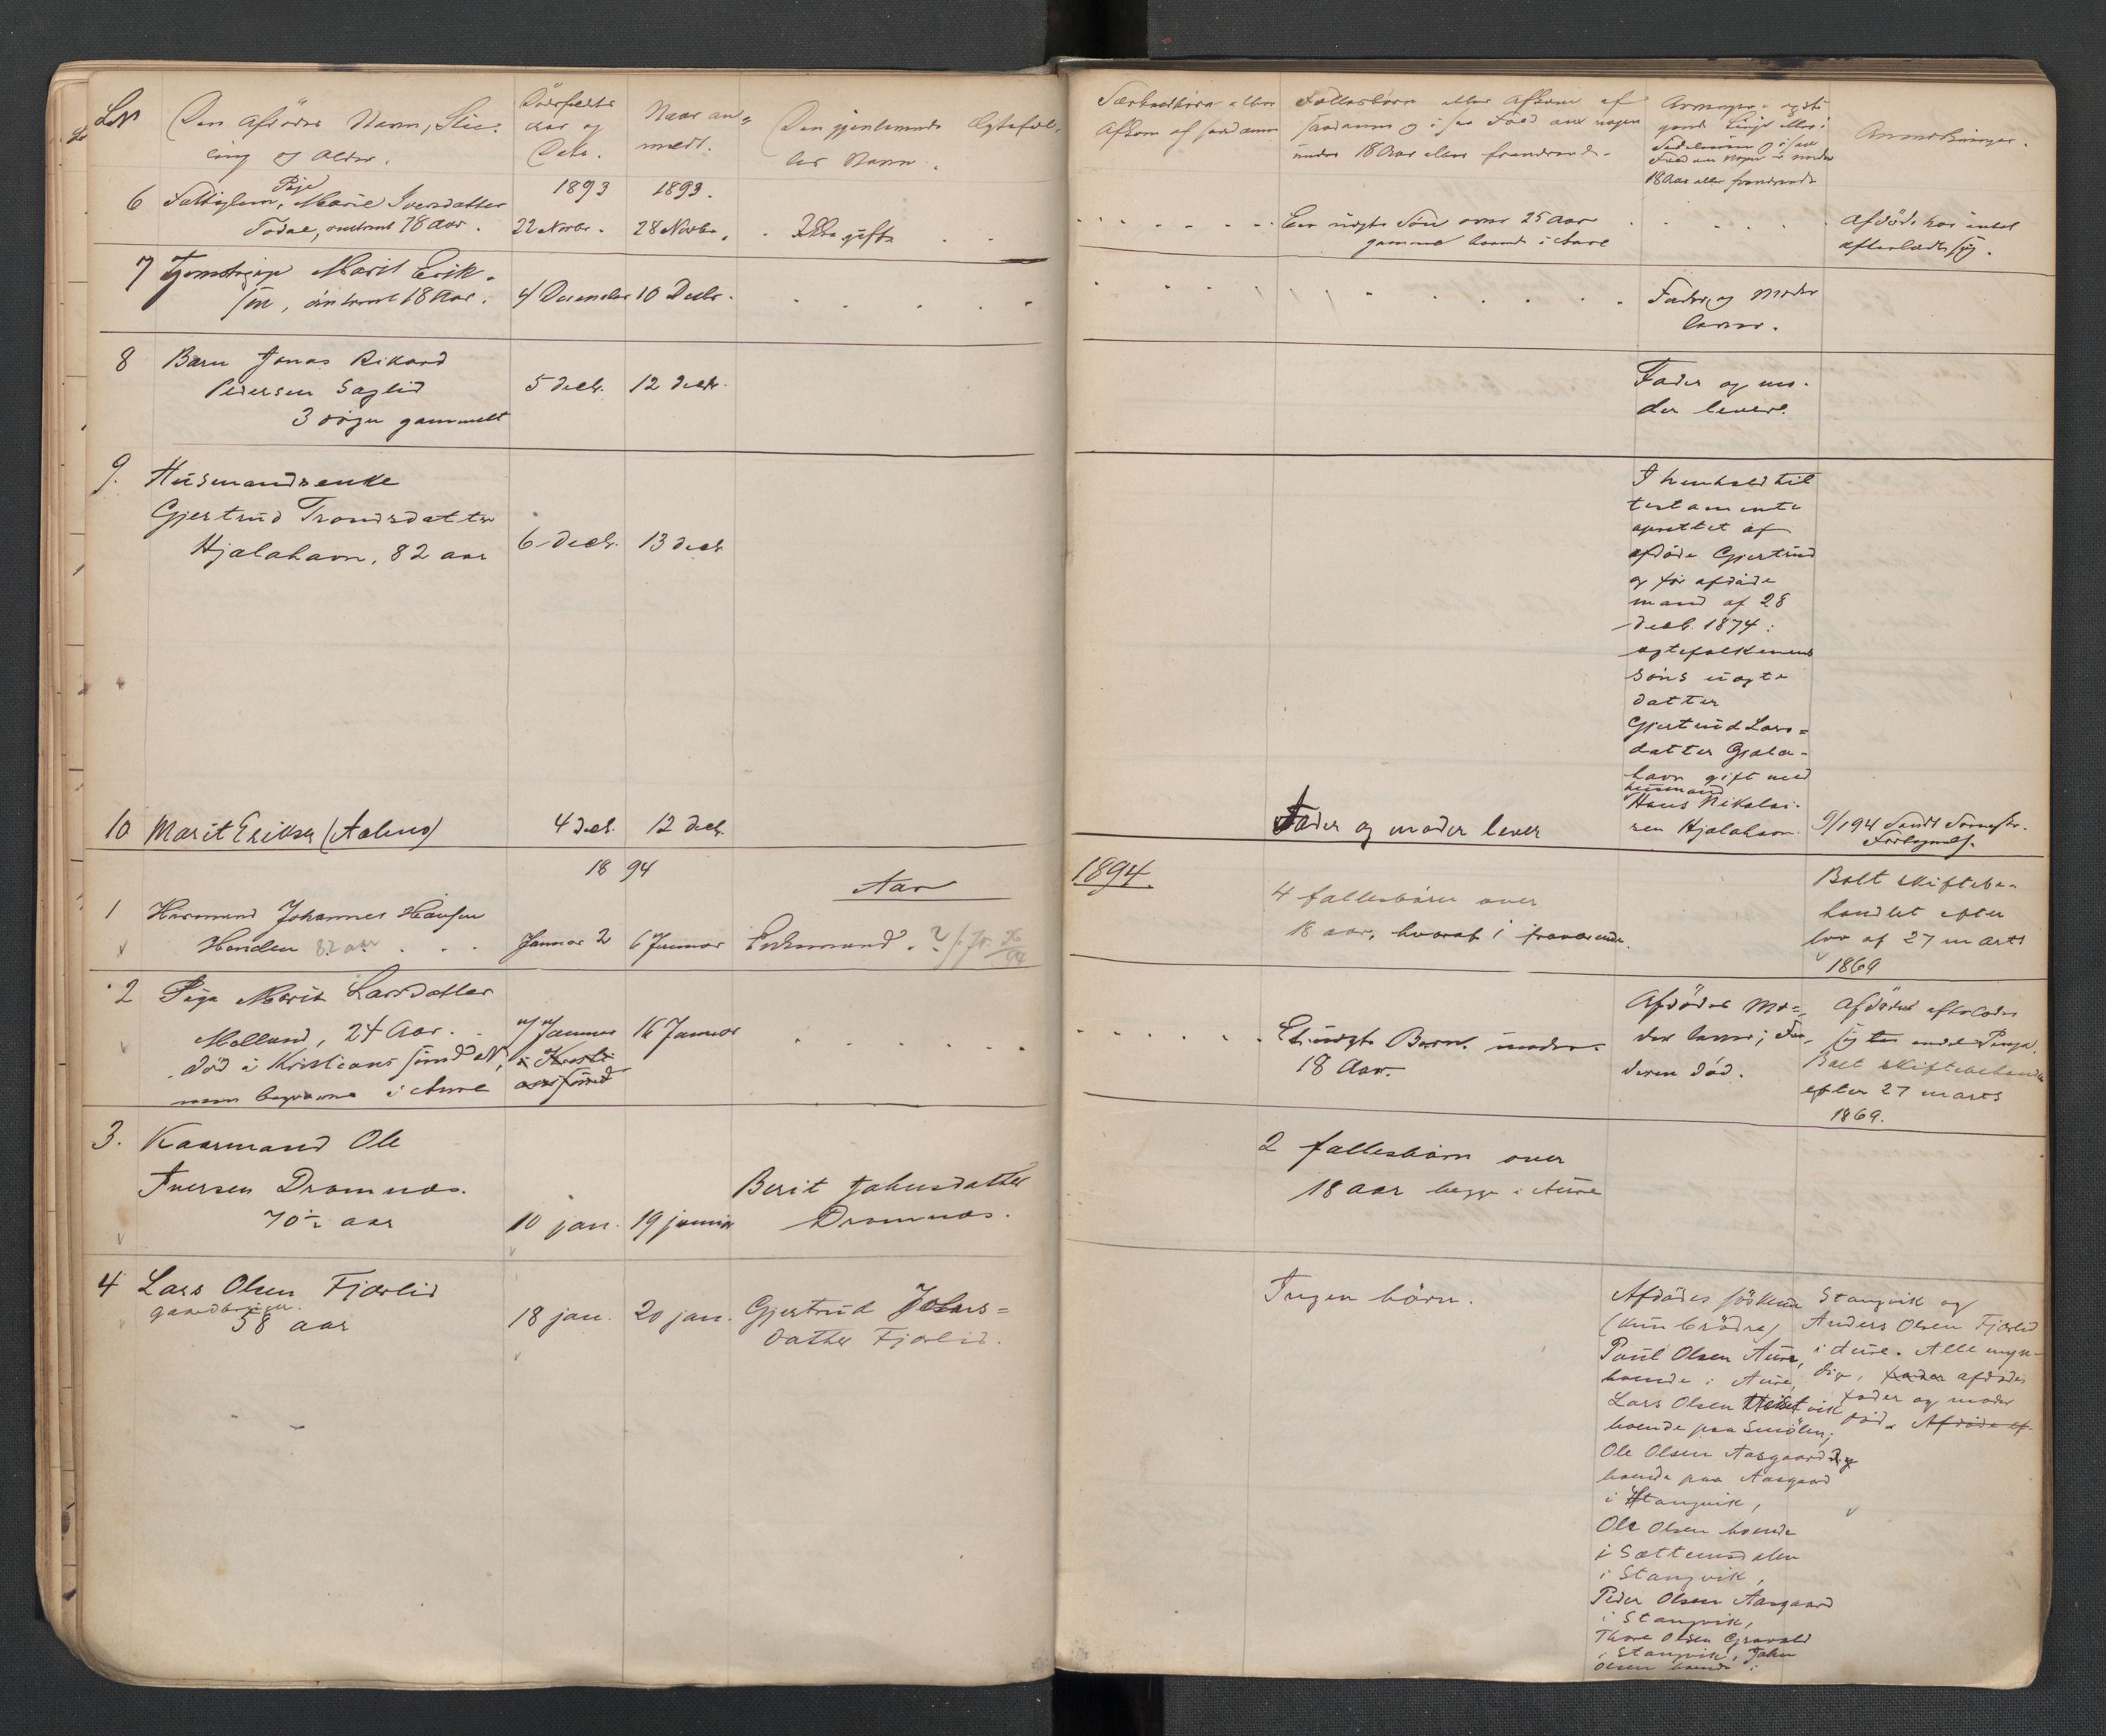 LN
Den afdødes Navn, Stil-
ling og Alder.
Dødsfaldets
Aar og
Dato.
Naar an-
meldt.
Den gjenlevende Ægtefæl-
les Navn.
Særkuldsbørn eller
Afkom af saadanne
Fællesbørn eller Afkom af
saadanne og i saa Fald om nogen
under 18 Aar eller fraværende
Arvinger i opsti-
gende Linje eller i
Sidelinien og i saa
Fald om nogen er under
18 Aar eller fraværende
Anmærkninger.
1893
1893.
6
Pige
Marie Iversdatter
Todal, omtrent 78 Aar.
22 Novbr.
28 Novbr.
Ikke gift
En uægte Søn over 25 Aar
gammel boende i Aure
Afdøde har intet
efterladt sig.
7
Marit Erik-
sen, omtrent 18 Aar.
4 December
10 Decbr.
Fader og Moder
lever.
8
Barn Jonas Rikard
Pedersen Saglid
3 uger gammelt
5 decb.
12 decb.
Fader og mo-
der lever.
9.
Husmandsenke
Gjertrud Trondsdatter
Hjalahavn, 82 aar
6 decb.
13 decb
I henhold til
testamente
oprettet af
afdøde Gjertrud
og før afdøde
mand af 28
decb. 1874:
ægtefolkenes
søns uægte
datter
Gjertrud Lars=
datter Gjala-
havn gift med
husmand
Hans Nikolai-
sen Hjalahavn.
10
Marit Eriksen (Aalmo)
4 decb.
12 decb.
Fader og moder lever
9/1 94 Sendt
18 94
Aar
1894.
1
Husmand Johannes Hansen
Henden 82 aar
Januar 2
6 Januar
Enkemand. ?
4 fællesbørn over
18 aar, hvoraf 1 fraværende.
Bolt skiftebe-
handlet efter
lov af 27 marts
1869
2
Pige Marit Larsdatter
Melland, 24 Aar.
død i Kristianssund N,
men begraven i Aure
7 Januar
i Kristi-
anssund
16 Januar
Et uægte Barn under
18 Aar.
Afdødes Mo-
der lever; Fa-
deren død.
Afdøde efterlader
sig en del Penge.
Bolt skiftebehandlet
efter 27 marts
1869.
3.
Kaarmand Ole
Iversen Dromnæs.
70½ aar
10 jan.
19 januar
Berit Johnsdatter
Dromnæs.
2 fællesbørn over
18 aar begge i Aure
4
Lars Olsen Fjærlid
gaardbruger.
58 aar
18 jan.
20 jan.
Gjertrud Johns=
datter Fjærlid.
Ingen børn.
Afdødes søskende
(kun brødre)
Paul Olsen Aure,
boende i Aure,
Lars Olsen
boende paa Smølen,
Ole Olsen Aasgaard
boende paa Aasgaard
i Stangvik,
Ole Olsen boende
i Sættemsdalen
i Stangvik,
Peder Olsen Aasgaard
i Stangvik,
Thore Olsen
i Stangvik, John
Olsen boende i
Stangvik og
Anders Olsen Fjærlid
i Aure. Alle myn-
dige, fader afdødes
fader og moder
død. Afdøde ef-